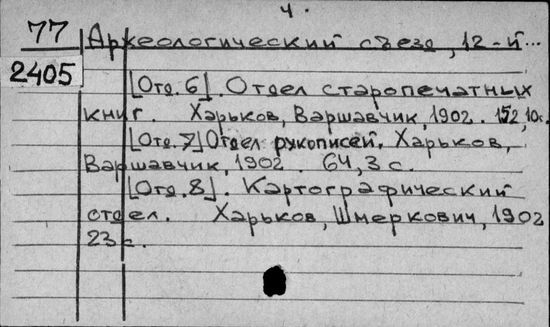 4.
77 Археологический съезд, 12-й...
2405
[Отд. 6]. Отдел старопечатных
книг. Харьков, Варшавчик, 1902. 152, 10с.
[Отд. 7] Отдел рукописей. Харьков,
Варшавчик, 1902. 64, 3 с.
[Отд. 8]. Картографический
отдел. Харьков, Шмеркович, 1902
23 с.